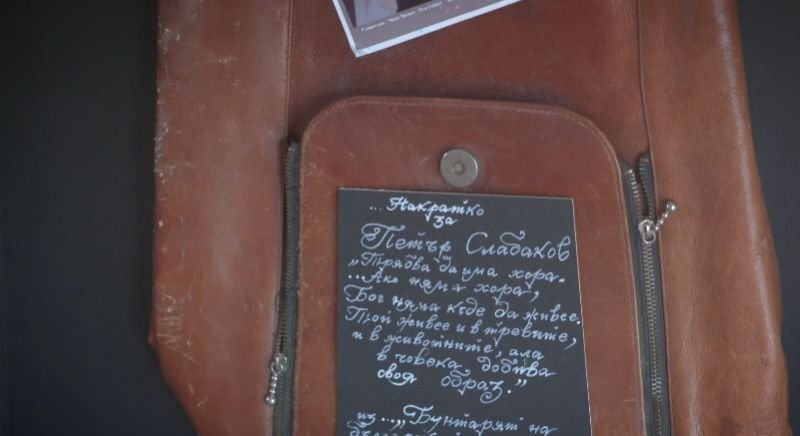 ... Накратко
за
Петър Слабаков
„Трябва да има хора.
...Ако няма хора,
Бог няма къде да живее.
Той живее и в тревите,
и в животните, ала
в човека добива
своя образ.”
из ...„Бунтарят на